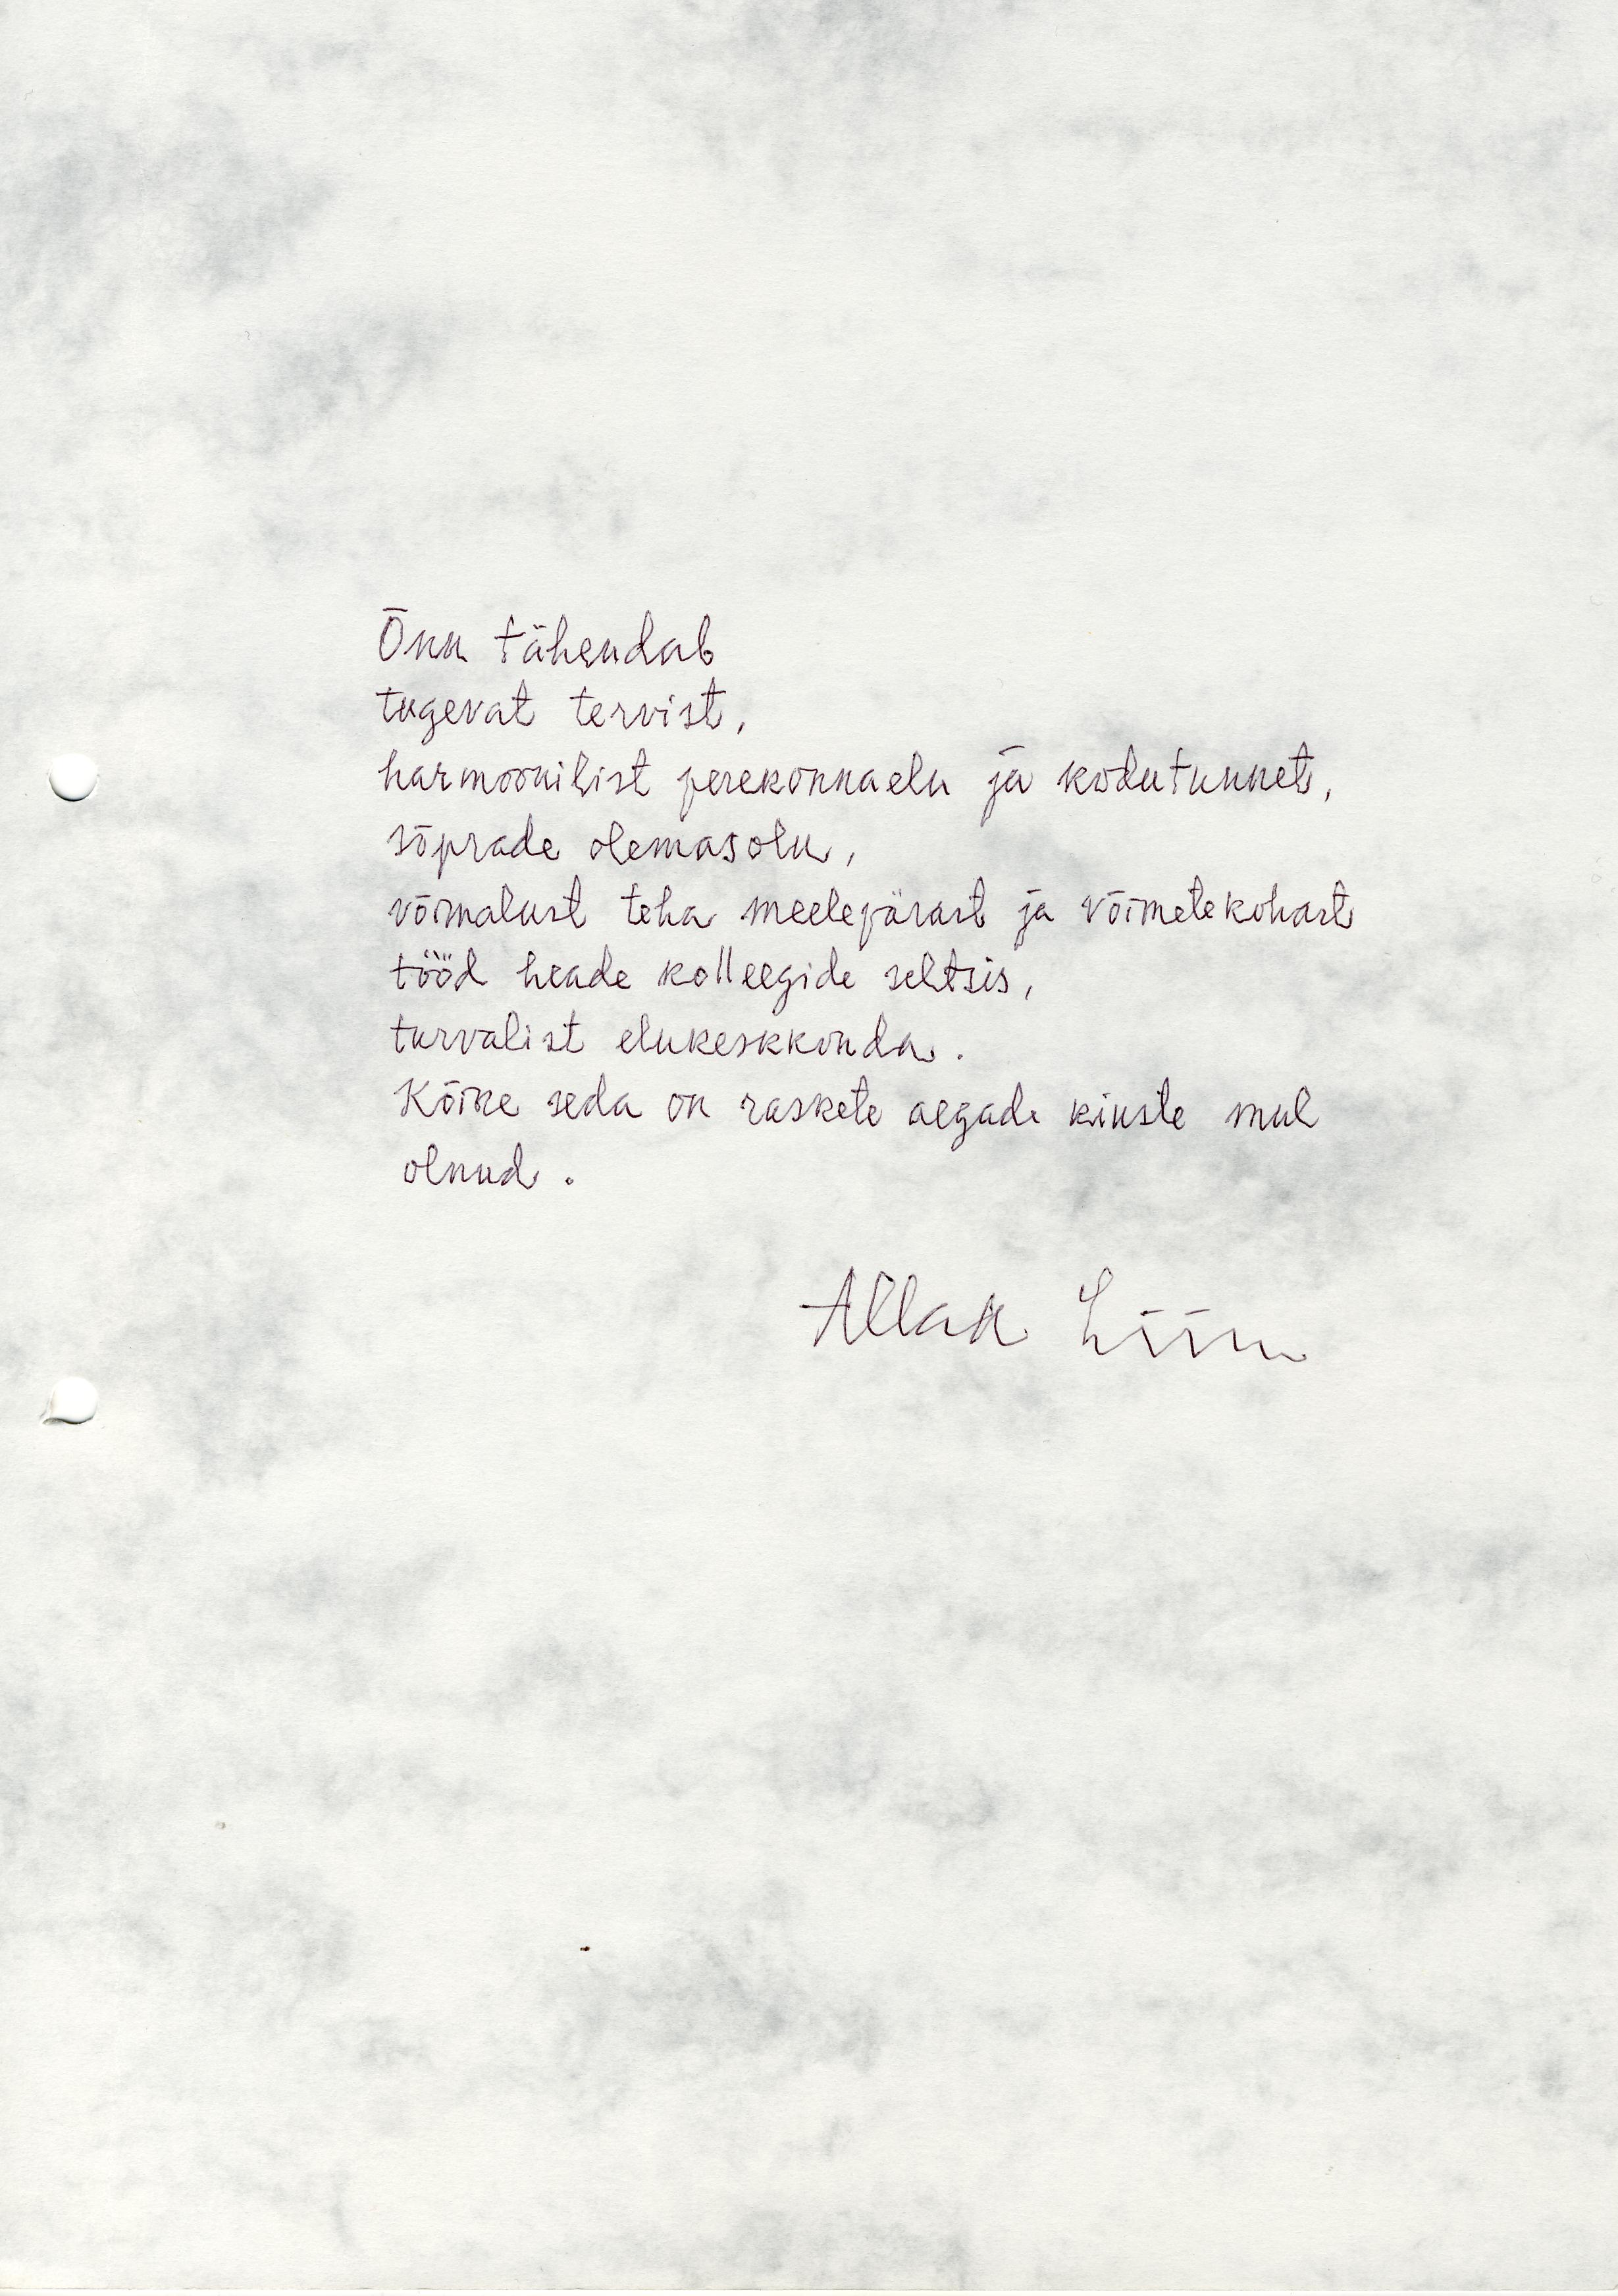 Õnn tähendab
tugevat tervist,
harmoonilist perekonnaelu ja kodutunnet,
sõprade olemasolu,
võimalust teha meelepärast ja võimetekohast
tööd heade kolleegide seltsis,
turvalist elukeskkonda.
Kõike seda on raskete aegade kiuste mul
olnud.
Allan Liim